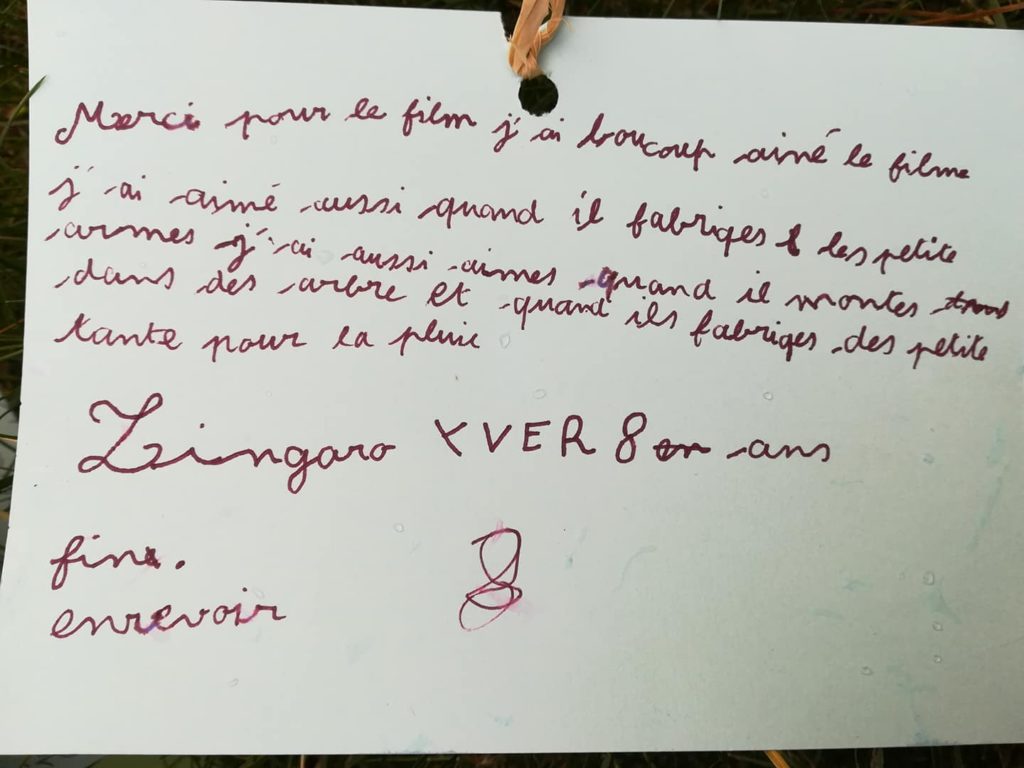 Merci pour le film j'ai boucoup aimé le filme
j'ai aimé aussi quand il fabriges les petite
armes j'ai aussi aimes quand il montes
dans des arbre et quand ils fabriges des petite
tante pour la pluie
Zingaro YVER 8 ans
fin.
enrevoir